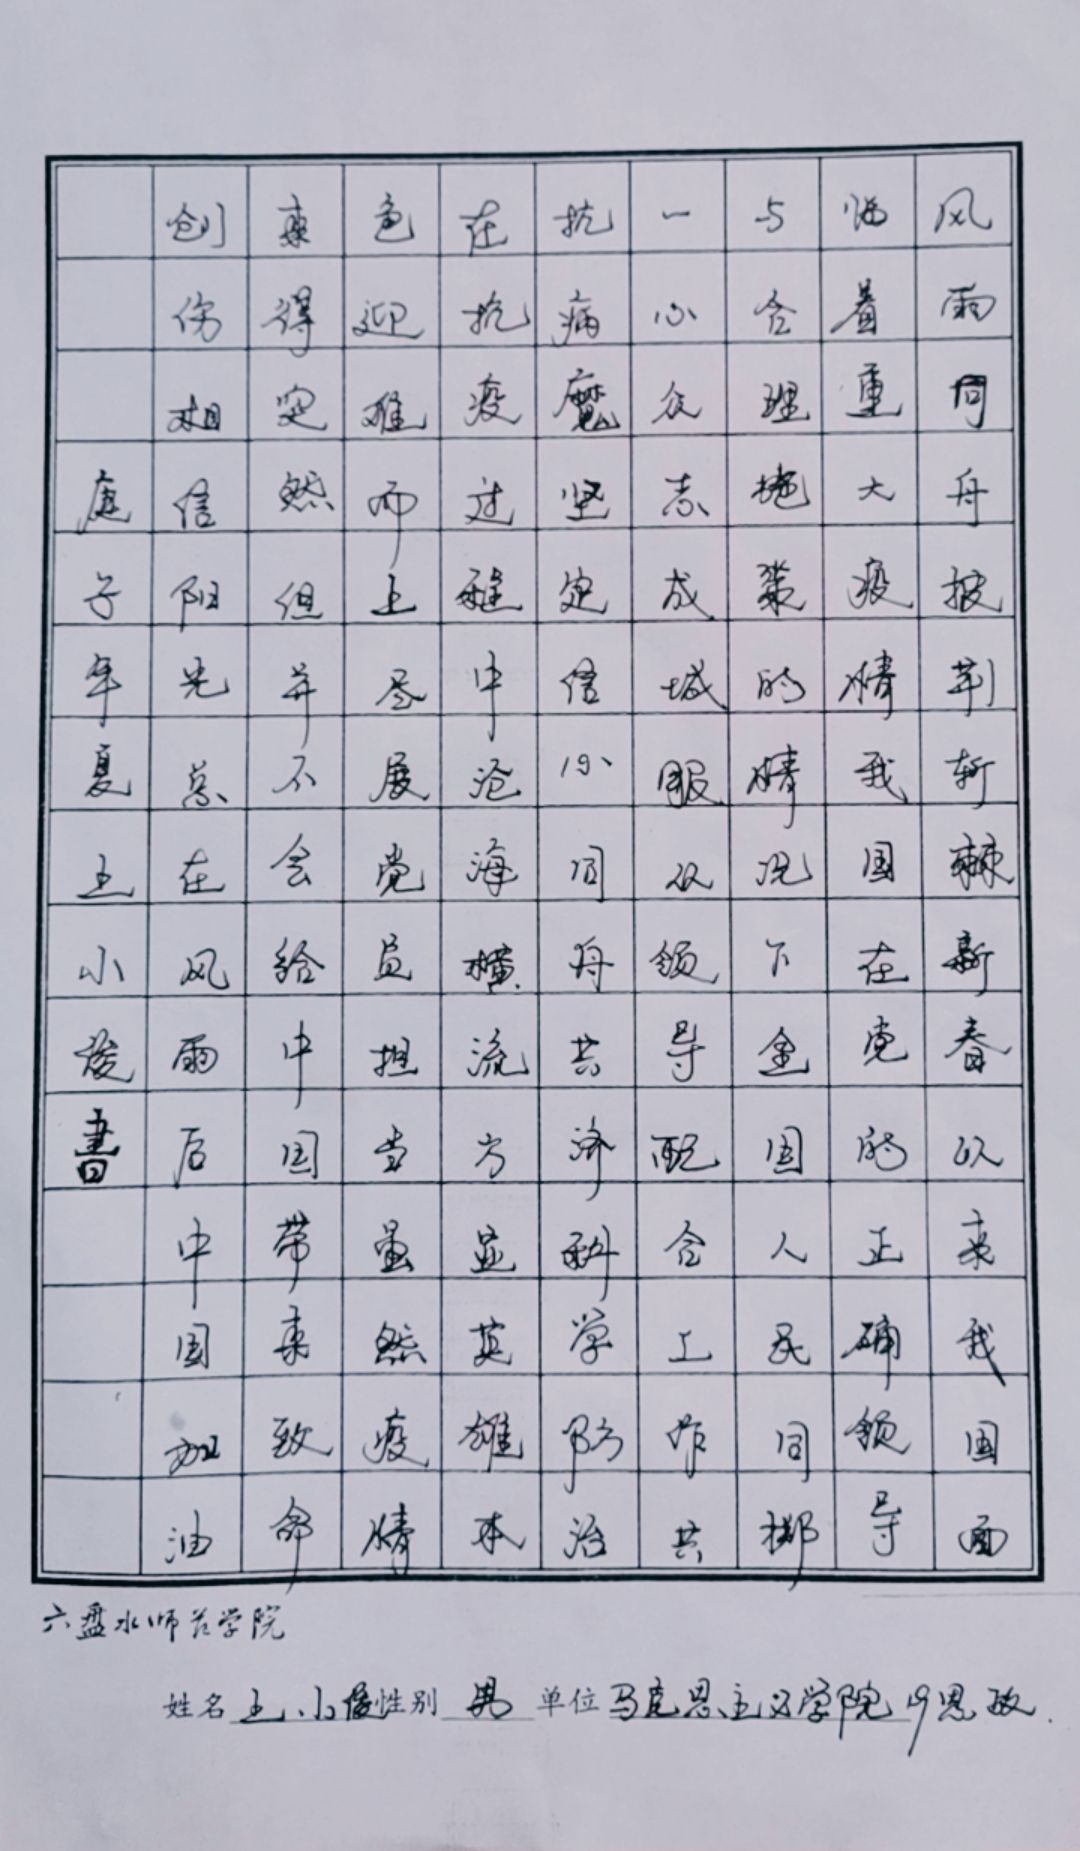 风雨同舟披荆斩棘新春以来我国面
临着重大疫情我国在党的正确领导
与合理施策的情况下全国人民同掷
一心众志成城服从领导配合工作共
抗病魔坚定信心同舟共济科学防治
在抗疫过程中沧海横流方显英雄本
色迎难而上尽展党员担当虽然疫情
来得突然但并不会给中国带来致命
创伤相信阳光总在风雨后中国加油
庚子年夏王小俊書
六盘水师范学院
姓名王小俊性别男单位马克思主义学院19思政.